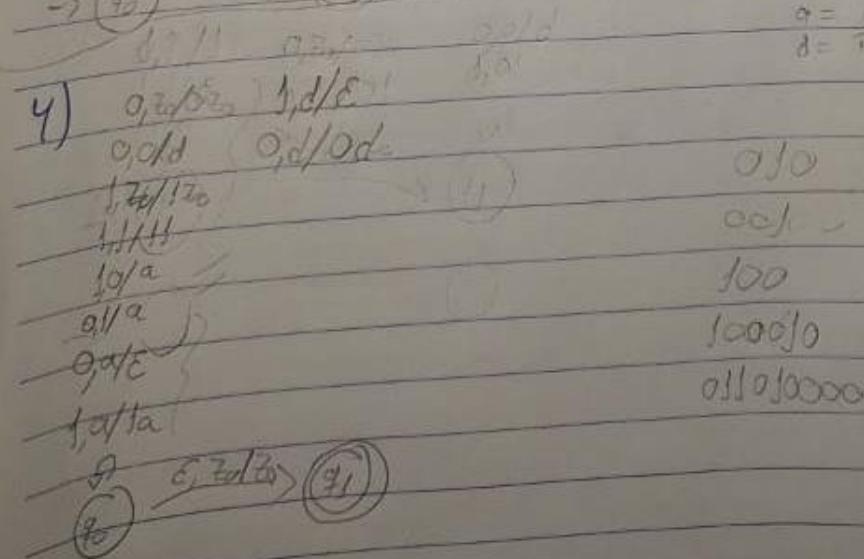 a =
d =
4) 0,z0/0z0 1,d/ε
0,0/d 0,d/0d
1,z0/1z0
1,1/11
1,0/a
0,1/a
0,a/ε
1,a/1a
q0 ε,z0/z0 q1
010
001
100
100010
011010000